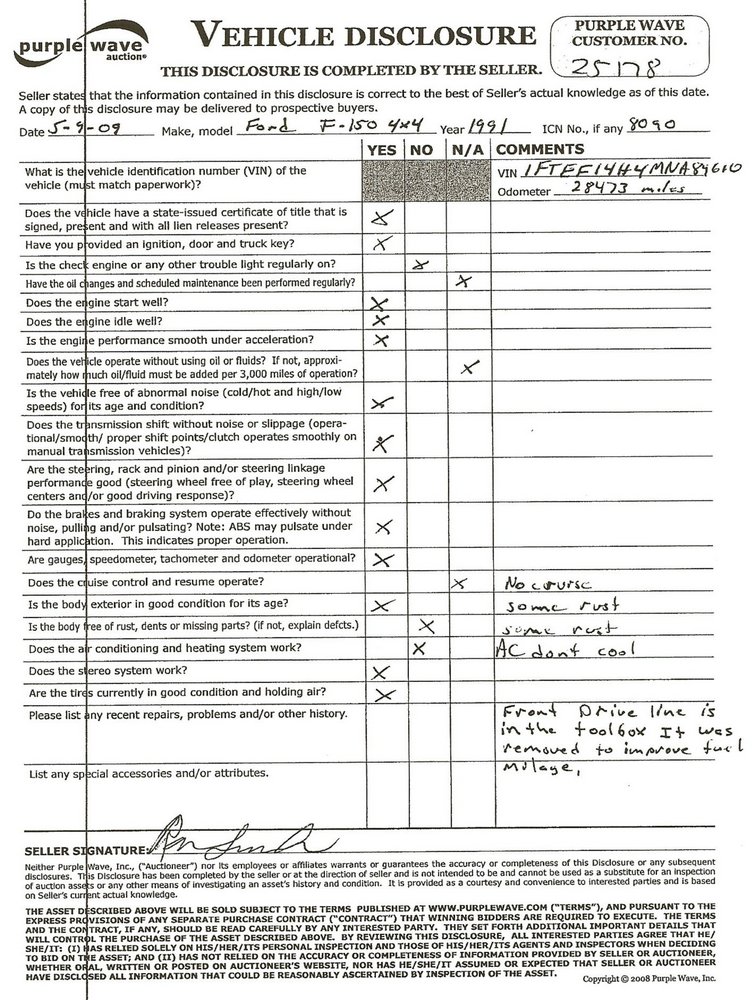 purple wave
auction®
VEHICLE DISCLOSURE
THIS DISCLOSURE IS COMPLETED BY THE SELLER.
PURPLE WAVE
CUSTOMER NO.
25178
Seller states that the information contained in this disclosure is correct to the best of Seller's actual knowledge as of this date.
A copy of this disclosure may be delivered to prospective buyers.
Date 5-9-09 Make, model Ford F-150 4x4 Year 1991 ICN No., if any 8090
YES NO N/A COMMENTS
What is the vehicle identification number (VIN) of the
vehicle (must match paperwork)?
VIN 1FTEF14H4MNA84610
Odometer 28473 miles
Does the vehicle have a state-issued certificate of title that is
signed, present and with all lien releases present? X
Have you provided an ignition, door and truck key? X
Is the check engine or any other trouble light regularly on? X
Have the oil changes and scheduled maintenance been performed regularly? X
Does the engine start well? X
Does the engine idle well? X
Is the engine performance smooth under acceleration? X
Does the vehicle operate without using oil or fluids? If not, approxi-
mately how much oil/fluid must be added per 3,000 miles of operation? X
Is the vehicle free of abnormal noise (cold/hot and high/low
speeds) for its age and condition? X
Does the transmission shift without noise or slippage (opera-
tional/smooth/ proper shift points/clutch operates smoothly on
manual transmission vehicles)? X
Are the steering, rack and pinion and/or steering linkage
performance good (steering wheel free of play, steering wheel
centers and/or good driving response)? X
Do the brakes and braking system operate effectively without
noise, pulling and/or pulsating? Note: ABS may pulsate under
hard application. This indicates proper operation. X
Are gauges, speedometer, tachometer and odometer operational? X
Does the cruise control and resume operate? X No course
Is the body exterior in good condition for its age? X some rust
Is the body free of rust, dents or missing parts? (if not, explain defcts.) X some rust
Does the air conditioning and heating system work? X AC dont cool
Does the stereo system work? X
Are the tires currently in good condition and holding air? X
Please list any recent repairs, problems and/or other history.
Front Drive line is
in the toolbox It was
removed to improve fuel
Milage,
List any special accessories and/or attributes.
SELLER SIGNATURE:
Neither Purple Wave, Inc., ("Auctioneer") nor its employees or affiliates warrants or guarantees the accuracy or completeness of this Disclosure or any subsequent
disclosures. This Disclosure has been completed by the seller or at the direction of seller and is not intended to be and cannot be used as a substitute for an inspection
of auction assets or any other means of investigating an asset's history and condition. It is provided as a courtesy and convenience to interested parties and is based
on Seller's current actual knowledge.
THE ASSET DESCRIBED ABOVE WILL BE SOLD SUBJECT TO THE TERMS PUBLISHED AT WWW.PURPLEWAVE.COM ("TERMS"), AND PURSUANT TO THE
EXPRESS PROVISIONS OF ANY SEPARATE PURCHASE CONTRACT ("CONTRACT") THAT WINNING BIDDERS ARE REQUIRED TO EXECUTE. THE TERMS
AND THE CONTRACT, IF ANY, SHOULD BE READ CAREFULLY BY ANY INTERESTED PARTY. THEY SET FORTH ADDITIONAL IMPORTANT DETAILS THAT
WILL CONTROL THE PURCHASE OF THE ASSET DESCRIBED ABOVE. BY REVIEWING THIS DISCLOSURE, ALL INTERESTED PARTIES AGREE THAT HE/
SHE/IT: (I) HAS RELIED SOLELY ON HIS/HER/ITS PERSONAL INSPECTION AND THOSE OF HIS/HER/ITS AGENTS AND INSPECTORS WHEN DECIDING
TO BID ON THE ASSET; AND (II) HAS NOT RELIED ON THE ACCURACY OR COMPLETENESS OF INFORMATION PROVIDED BY SELLER OR AUCTIONEER,
WHETHER ORAL, WRITTEN OR POSTED ON AUCTIONEER'S WEBSITE, NOR HAS HE/SHE/IT ASSUMED OR EXPECTED THAT SELLER OR AUCTIONEER
HAVE DISCLOSED ALL INFORMATION THAT COULD BE REASONABLY ASCERTAINED BY INSPECTION OF THE ASSET.
Copyright © 2008 Purple Wave, Inc.